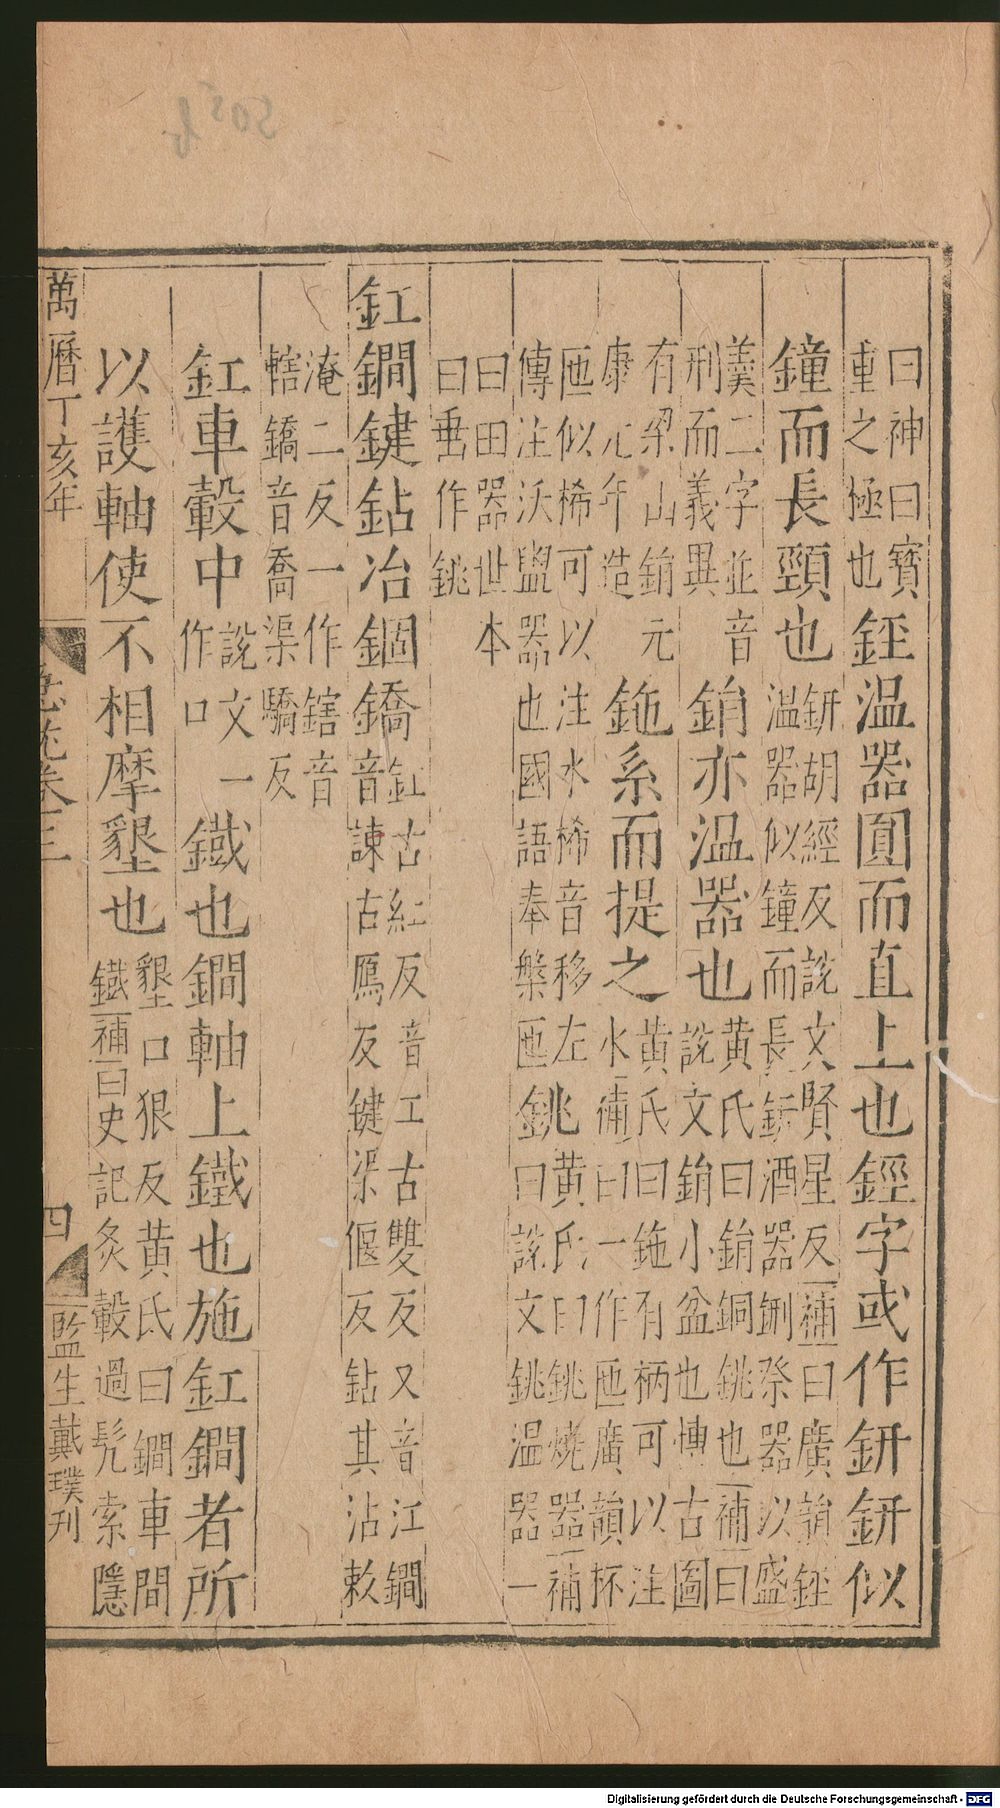 曰神曰寶
重之極也
鋞温器圓而直上也鋞字或作鈃鈃似
鐘而長頸也
鈃胡經反說文賢星反補曰廣韻鋞
温器似鐘而長鈃酒器鉶祭器以盛
羹二字並音
刑而義異
銷亦温器也
黄氏曰銷銅銚也補曰
說文銷小盆也博古圖
有梁山銷元
康元年造
鉇系而提之
黄氏曰鉇有柄可以注
水補曰一作匜廣韻杯
匜似桸可以注水桸音移左
傳注沃盥器也國語奉槃匜
銚
黄氏曰銚燒器補
曰說文銚温器一
曰田器世本
曰垂作銚
釭鐧鍵鉆冶錮鐈
釭古紅反音工古雙反又音江鐧
音諫古鴈反鍵渠偃反鉆其沾敕
淹二反一作鎋音
轄鐈音喬渠驕反
釭車轂中
說文一
作口
鐵也鐧軸上鐵也施釭鐧者所
以護軸使不相摩墾也
墾口狠反黄氏曰鐧車間
鐵補曰史記炙轂過髠索隱
萬曆丁亥年
急就卷三
四
監生戴璞刊
Digitalisierung gefördert durch die Deutsche Forschungsgemeinschaft - DFG